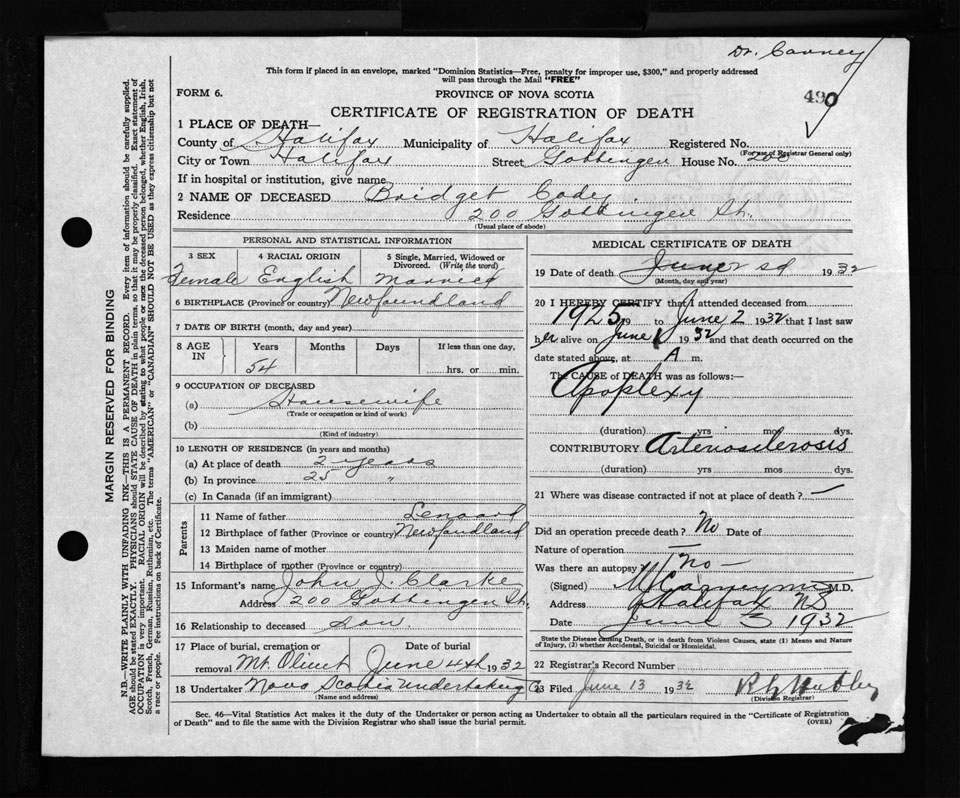 Dr. Carney
This form if placed in an envelope, marked "Dominion Statistics—Free, penalty for improper use, $300," and properly addressed
will pass through the Mail "FREE"
FORM 6.
PROVINCE OF NOVA SCOTIA
490
CERTIFICATE OF REGISTRATION OF DEATH
1 PLACE OF DEATH—
County of Halifax Municipality of Halifax Registered No.
(For use of Registrar General only)
City or Town Halifax Street Gottingen House No. 200
If in hospital or institution, give name
2 NAME OF DECEASED Bridget Cody
Residence 200 Gottingen St.
(Usual place of abode)
PERSONAL AND STATISTICAL INFORMATION
3 SEX 4 RACIAL ORIGIN 5 Single, Married, Widowed or
Divorced. (Write the word)
Female English Married
6 BIRTHPLACE (Province or country) Newfoundland
7 DATE OF BIRTH (month, day and year)
8 AGE IN Years Months Days If less than one day,
54 hrs. or min.
9 OCCUPATION OF DECEASED
(a) Housewife
(Trade or occupation or kind of work)
(b)
(Kind of industry)
10 LENGTH OF RESIDENCE (in years and months)
(a) At place of death 2 years
(b) In province 25 "
(c) In Canada (if an immigrant)
Parents
11 Name of father Lenaard
12 Birthplace of father (Province or country) Newfundland
13 Maiden name of mother
14 Birthplace of mother (Province or country)
15 Informant's name John J. Clarke
Address 200 Gottengen St.
16 Relationship to deceased son
17 Place of burial, cremation or Date of burial
removal Mt. Olivet June 4th 1932
18 Undertaker Nova Scotia Undertaking Co
(Name and address)
MEDICAL CERTIFICATE OF DEATH
19 Date of death June 2sd 1932
(Month, day and year)
20 I HEREBY CERTIFY that I attended deceased from
1925 19 to June 2 1932 that I last saw
her alive on June 1 1932 and that death occurred on the
date stated above, at A m.
The CAUSE of DEATH was as follows:—
Apoplexy
(duration) yrs mos dys.
CONTRIBUTORY Arteriosclerosis
(duration) yrs mos dys.
21 Where was disease contracted if not at place of death? —
Did an operation precede death? No Date of
Nature of operation —
Was there an autopsy? No —
(Signed) Carney M.D.
Address Halifax NS
June 3 1932
State the Disease causing Death, or in death from Violent Causes, state (1) Means and Nature
of Injury, (2) whether Accidental, Suicidal or Homicidal.
22 Registrar's Record Number
23 Filed June 13 1932
(Division Registrar)
Sec. 46—Vital Statistics Act makes it the duty of the Undertaker or person acting as Undertaker to obtain all the particulars required in the "Certificate of Registration
of Death" and to file the same with the Division Registrar who shall issue the burial permit. (OVER)
MARGIN RESERVED FOR BINDING
N.B.—WRITE PLAINLY WITH UNFADING INK—THIS IS A PERMANENT RECORD. Every item of information should be carefully supplied.
AGE should be stated EXACTLY. PHYSICIANS should STATE CAUSE OF DEATH in plain terms, so that it may be properly classified. Exact statement of
OCCUPATION is very important. RACIAL ORIGIN will be described by stating to what people or race the deceased person belonged, whether English, Irish,
Scotch, French, German, Russian, Ruthenian, etc. The terms "AMERICAN" or "CANADIAN" SHOULD NOT BE USED as they express citizenship but not
a race or people. Fee instructions on back of Certificate.